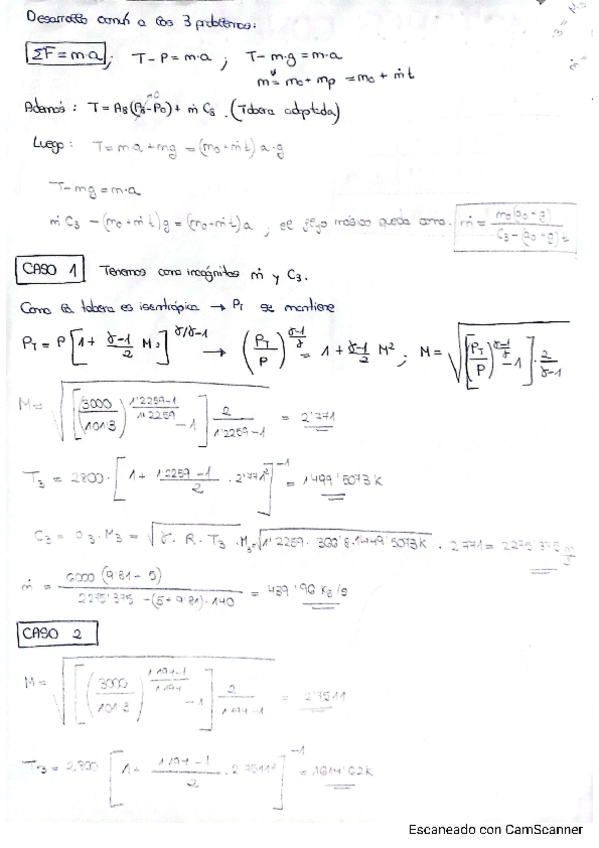 Desarrollo común a los 3 problemas:
ΣF = m·a ; T - P = m·a ; T - m·g = m·a
m = m0 + mp = m0 + ṁt
Además: T = A8(P8-P0) + ṁ C8. (Tobera adaptada)
Luego: T = ma + mg = (m0 + ṁt) a·g
T - mg = m·a
ṁ C3 - (m0 + ṁt)g = (m0 + ṁt)a, el flujo másico queda como: ṁ = m0(a0+g) / C3 - (a0+g)t
CASO 1 Tenemos como incógnitas ṁ y C3.
Como la tobera es isentrópica → PT se mantiene
PT = P[1 + γ-1/2 M²]^γ/γ-1 → (PT/P)^γ-1/γ = 1 + γ-1/2 M² ; M = √[(PT/P)^γ-1/γ - 1]·2/γ-1
M = √[(3000/101'3)^1'2259-1/1'2259 - 1] 2/1'2259-1 = 2'771
T3 = 2800·[1 + 1'2259-1/2 · 2'771²]^-1 = 1499'5073 K
C3 = a3·M3 = √γ·R·T3 · M3 = √1'2259· 366'8·1449'5073K · 2'771 = 2275'375 m/s
ṁ = 6000(9'81-5) / 2275'375 - (5+9'81)·140 = 439'96 Kg/s
CASO 2
M = √[(3000/101'3)^1'194-1/1'194 - 1] 2/1'194-1 = 2'7511
T3 = 2,800 [1 + 1'194-1/2 · 2'7511²]^-1 = 1614'62 K
Escaneado con CamScanner